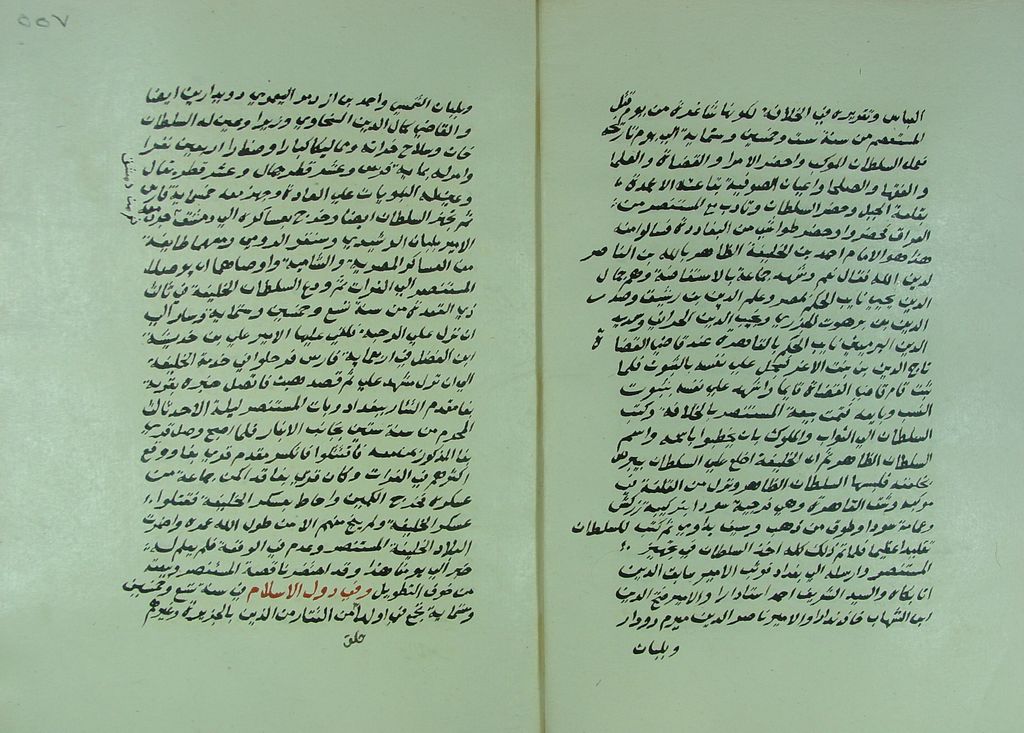 العباس وتقريره في الخلافة لكونها شاغرة من يوم قتل
المستعصم من سنة ست وخمسين وستماية الي يوم تاريخه
فعمل السلطان الموكب واحضر الامرا والقضاة والعلما
والفقها والصلحا واعيان الصوفية بقاعة الاعمدة
بقلعة الجبل وحضر السلطان وتادب مع المستنصر
العراق فحضروا وحضر طواشي من البغاددة فسالوا منه
هذا هو الامام احمد بن الخليفة الظاهر بالله بن الناصر
لدين الله فقال نعم وشهد جماعة بالاستفاضة وهم جمال
الدين يحيي نايب الحكم بمصر وعلم الدين بن رشيق وصدر
الدين بن برهوت الجزري ونجيب الدين الحراني وسديد
الدين نايب الحكم بالقاهرة عند قاضي القضاة
تاج الدين بن بنت الاعز فسجل علي نفسه بالثبوت فلما
ثبت قام قاضي القضاة قايما واشهد علي نفسه بثبوت
النسب وبايعه فتمت بيعة المستنصر بالخلافة وكتب
السلطان الي النواب والملوك بان يخطبوا باسمه واسم
السلطان الظاهر ثم ان الخليفة اخلع علي السلطان بيبرس
بخلعته فلبسها السلطان الظاهر ونزل من القلعة في
موكبه وشق القاهرة وهي فرجية سودا بتركيبة زركش
وعمامة سودا وطوق من ذهب وسيف بداوي ثم كتب للسلطان
تقليدا عظيما فلما تم ذلك كله اخذ السلطان في تجهيز
المستنصر وارسله الي بغداد فرتب الامير سابق الدين
اتابكاه والسيد الشريف احمد استادارا والامير فتح الدين
ابن الشهاب خازندارا والامير ناصر الدين صيرم دوادار
وبلبان
٥٥٧
وبلبان الشمسي واحمد بن ازدمر اليغموري دويدارين ايضا
والقاضي كمال الدين السنجاوي وزيرا وعين له السلطان
خزانة وسلاح خزانة ومماليكا كبارا وصغارا اربعين نفرا
وامر له بماية فرس وعشر قطر جمال وعشر قطر بغال
وعين له البيوتات علي العادة وجهز معه خمسماية فارس
ثم تجهز السلطان ايضا وخرج بعساكره الي دمشق فجهز معه
الامير بلبان الرشيدي وسنقر الرومي ومعهما طايفة
من العساكر المصرية والشامية واوصاهما ان يوصلا
المستنصر الي الفرات ثم ودع السلطان الخليفة في ثالث
ذي القعدة من سنة تسع وخمسين وستماية وسار الي
ان نزل علي الرحبة فلقي عليها الامير علي بن حديثة
ابن الفضل في اربعماية فارس فرحلوا في خدمة الخليفة
الي ان نزل مشهد علي ثم قصد هيت فاتصل خبره بقربة
بغا مقدم التتار ببغداد وبات المستنصر ليلة الاحد ثالث
المحرم من سنة ستين بجانب الانبار فلما اصبح وصل قربة
بغا المذكور بمن معه فاقتتلوا فانكسر مقدم قربة بغا ووقع
اكثرهم في الفرات وكان قربة بغا قد اكمن جماعة من
عسكره فخرج الكمين واحاط بعسكر الخليفة فقتلوا
عسكر الخليفة ولم ينج منهم الا من طول الله عمره
البلاد الخليفة المستنصر وعدم في الوقعة فلم يعلم له
خبر الي يومنا هذا وقد اختصرنا قصة المستنصر وبيعته
من خوف التطويل وفي دول الاسلام في سنة تسع وخمسين
وستماية تجمع في اولها من التتار من الذين بالجزيرة وغيرهم
خلق